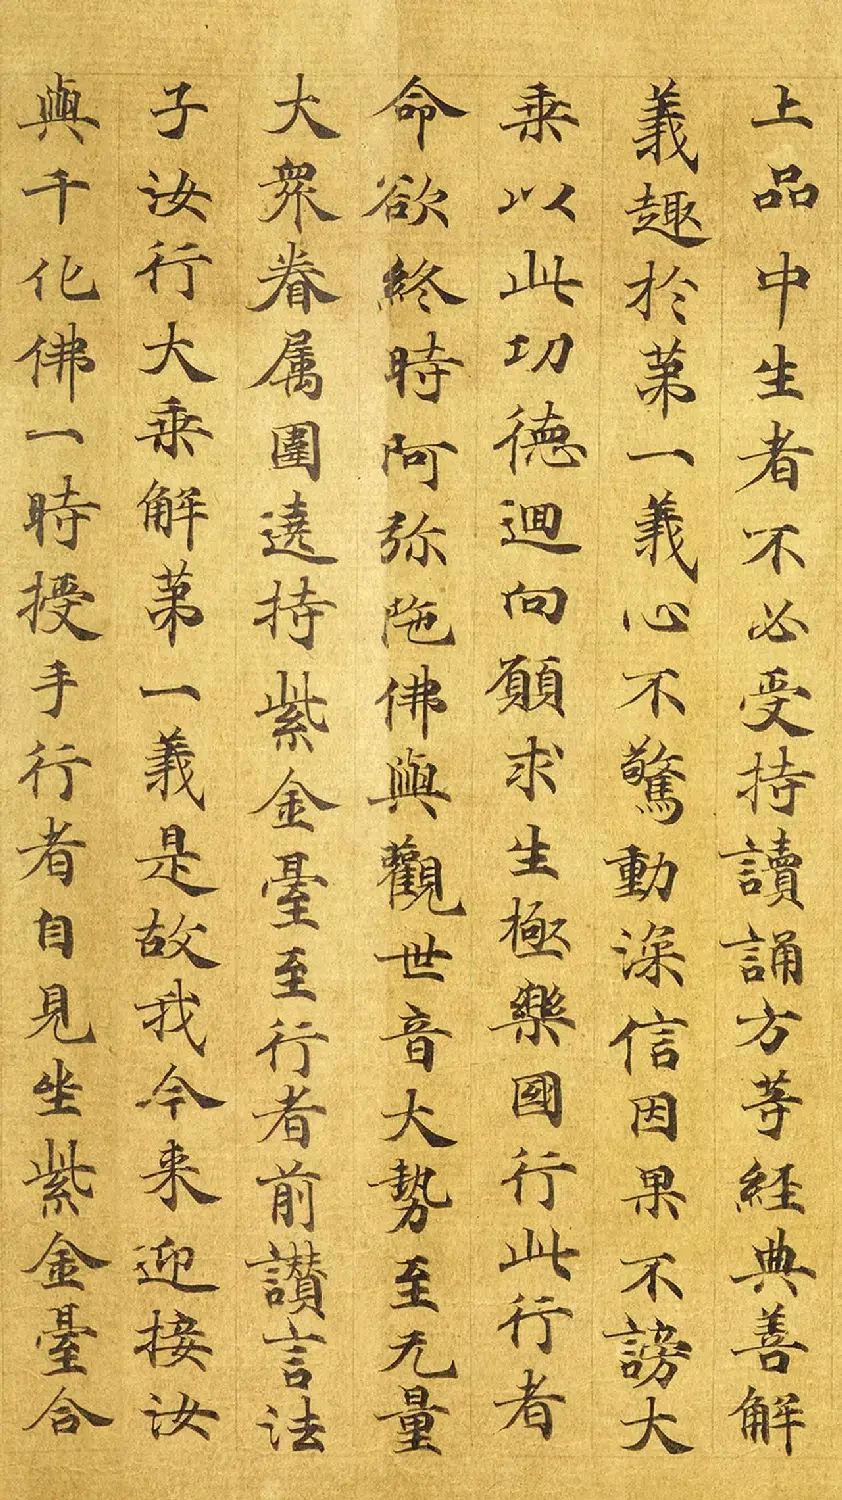 上品中生者不必受持讀誦方等經典善解
義趣於苐一義心不驚動深信因果不謗大
乗以此功德迴向願求生極樂國行此行者
命欲終時阿弥陁佛與觀世音大勢至无量
大衆眷属圍遶持紫金臺至行者前讃言法
子汝行大乗解苐一義是故我今来迎接汝
與千化佛一時授手行者自見坐紫金臺合